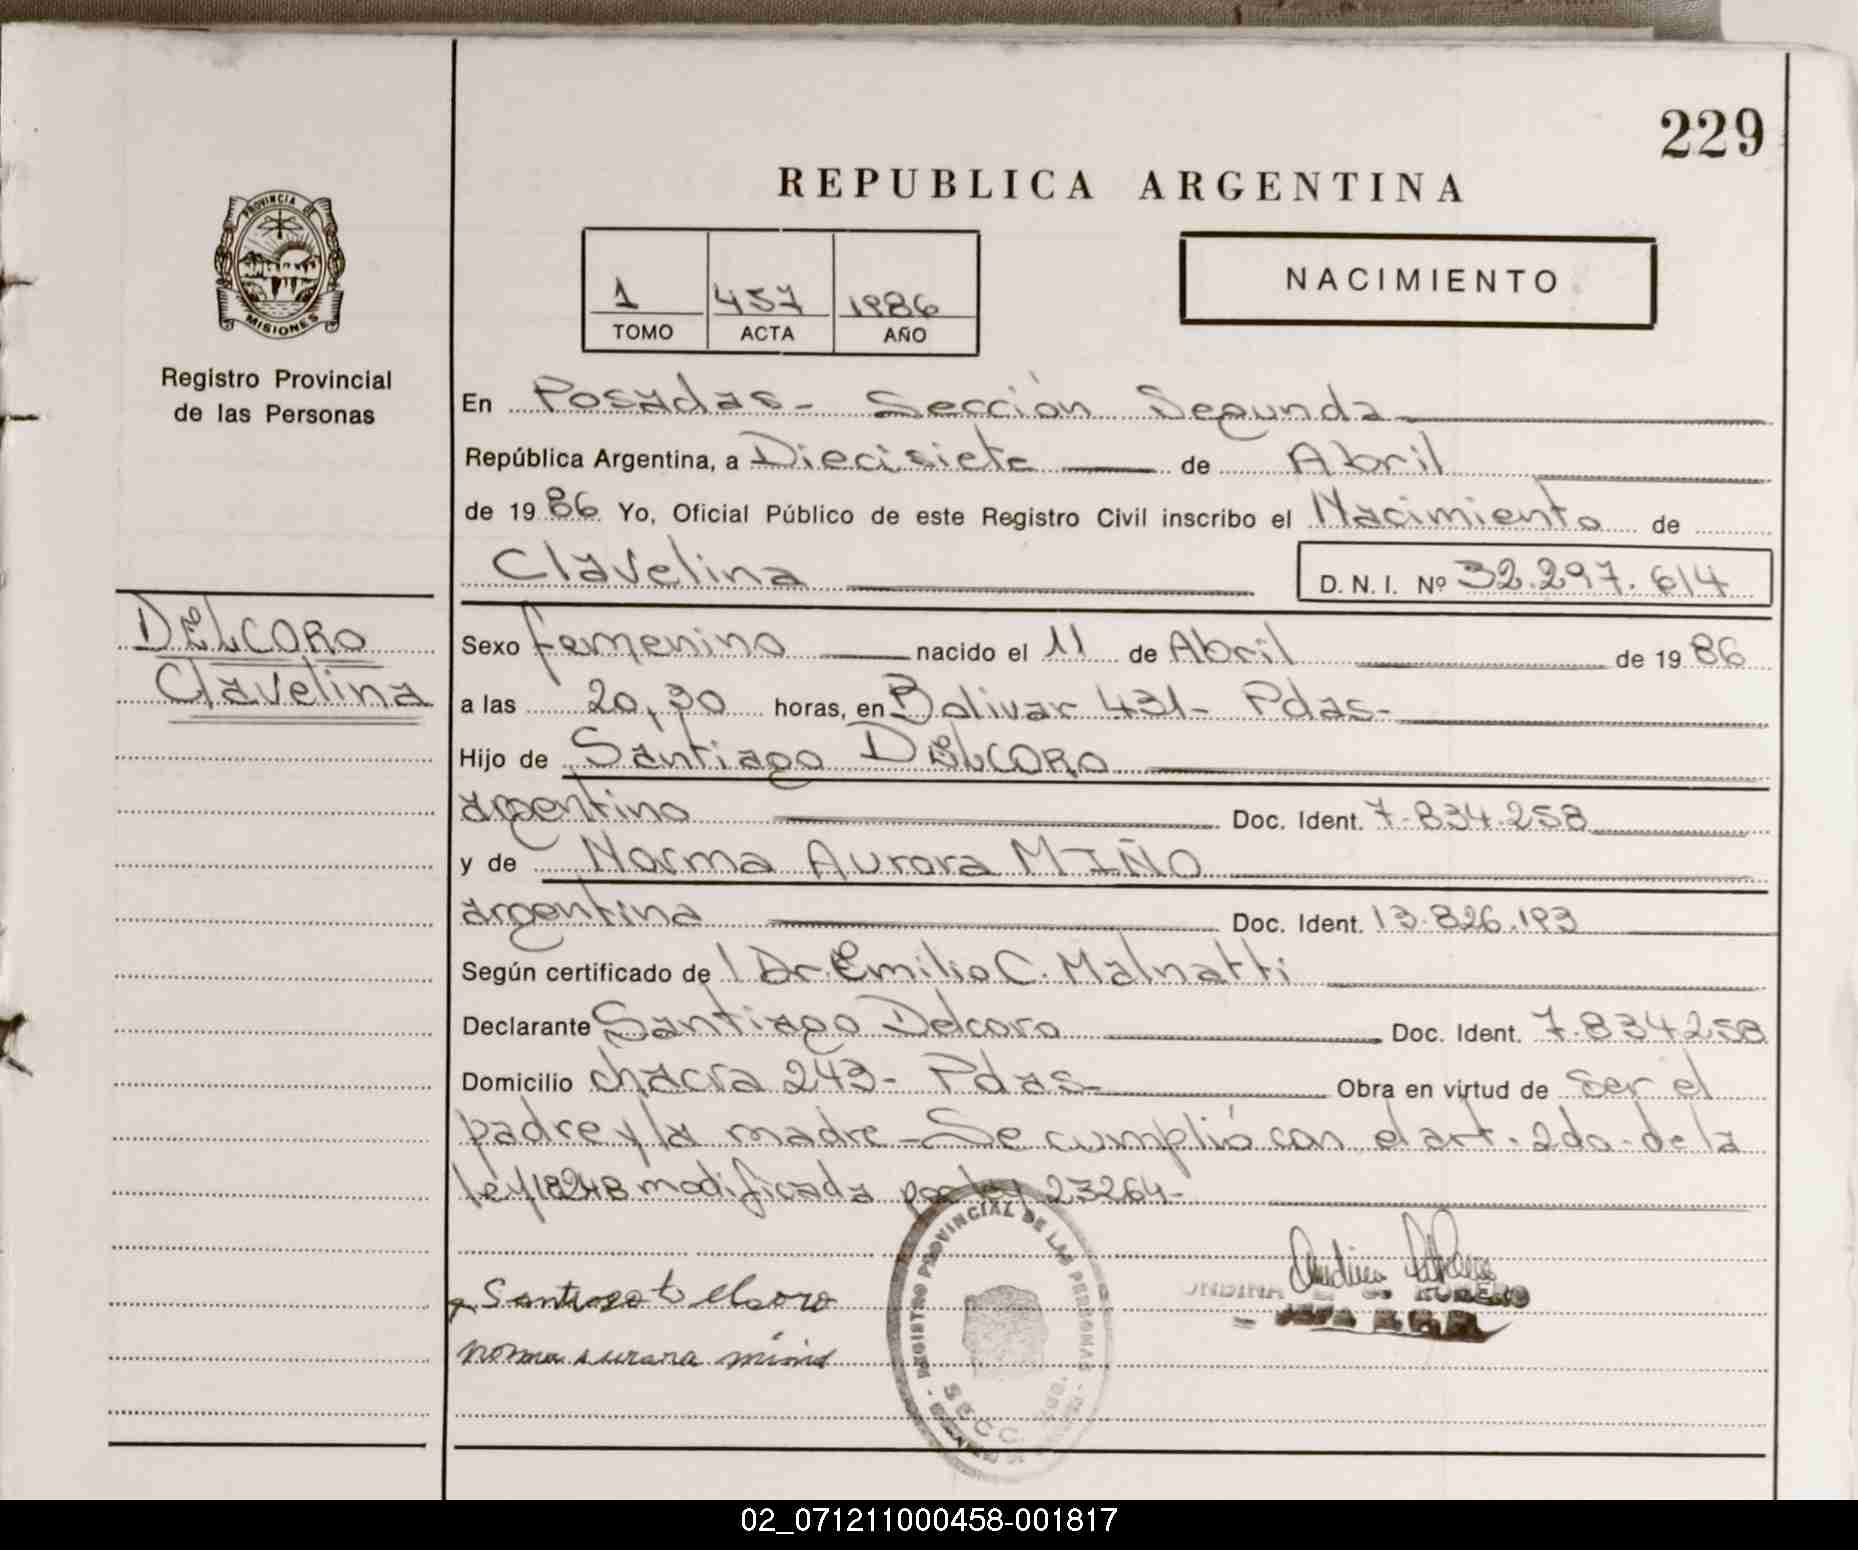 229
REPUBLICA ARGENTINA
PROVINCIA DE
MISIONES
1 457 1986
TOMO ACTA AÑO
NACIMIENTO
Registro Provincial
de las Personas
En Posadas - Sección Segunda
República Argentina, a Diecisiete de Abril
de 1986 Yo, Oficial Público de este Registro Civil inscribo el Nacimiento de
Clavelina D.N.I. Nº 32.297.614
DELCORO
Clavelina
Sexo femenino nacido el 11 de Abril de 1986
a las 20,30 horas, en Bolivar 431- Pdas-
Hijo de Santiago DELCORO
argentino Doc. Ident. 7.834.258
y de Norma Aurora MIÑO
argentina Doc. Ident. 13.826.193
Según certificado de Dr Emilio C. Malnatti
Declarante Santiago Delcoro Doc. Ident. 7.834258
Domicilio chacra 243- Pdas- Obra en virtud de ser el
padre y la madre - Se cumplió con el art. 2do. de la
ley 18248 modificada por ley 23264-
REGISTRO PROVINCIAL DE LAS PERSONAS
SECC.
Norma aurora miño
02_071211000458-001817